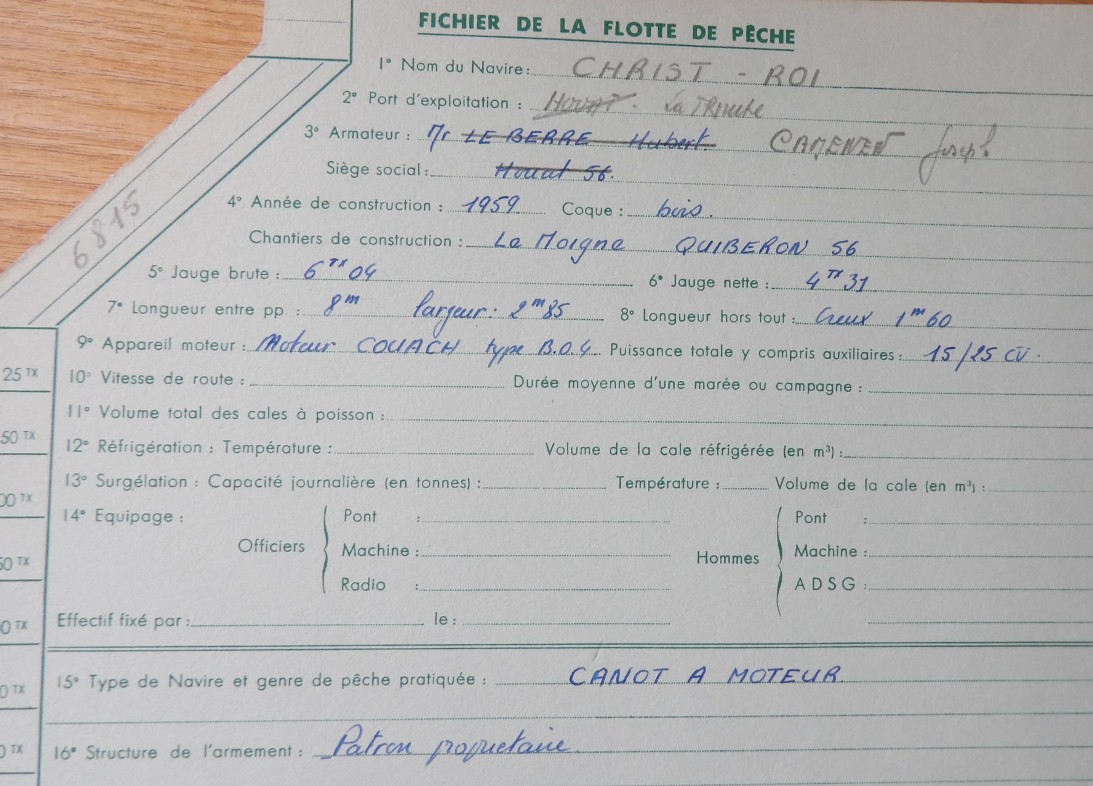 FICHIER DE LA FLOTTE DE PÊCHE
1° Nom du Navire : CHRIST - ROI
2° Port d'exploitation : HOUAT. La TRINITE
3° Armateur : Mr LE BERRE Hubert. CAMENEN Joseph
Siège social : Houat 56.
4° Année de construction : 1959 Coque : bois.
Chantiers de construction : Le Moigne QUIBERON 56
6815
5° Jauge brute : 6 TX 04 6° Jauge nette : 4 TX 31
7° Longueur entre pp. : 8m largeur : 2m85 8° Longueur hors tout : Creux 1m60
9° Appareil moteur : Moteur COUACH type B.0.4 Puissance totale y compris auxiliaires : 15/25 CV.
25 TX
10° Vitesse de route : Durée moyenne d'une marée ou campagne :
11° Volume total des cales à poisson :
50 TX
12° Réfrigération : Température : Volume de la cale réfrigérée (en m³) :
13° Surgélation : Capacité journalière (en tonnes) : Température : Volume de la cale (en m³) :
00 TX
14° Equipage :
Officiers
Pont :
Machine :
Radio :
Hommes
Pont :
Machine :
A D S G :
50 TX
0 TX
Effectif fixé par : le :
15° Type de Navire et genre de pêche pratiquée : CANOT A MOTEUR
0 TX
16° Structure de l'armement : Patron propietaire
0 TX